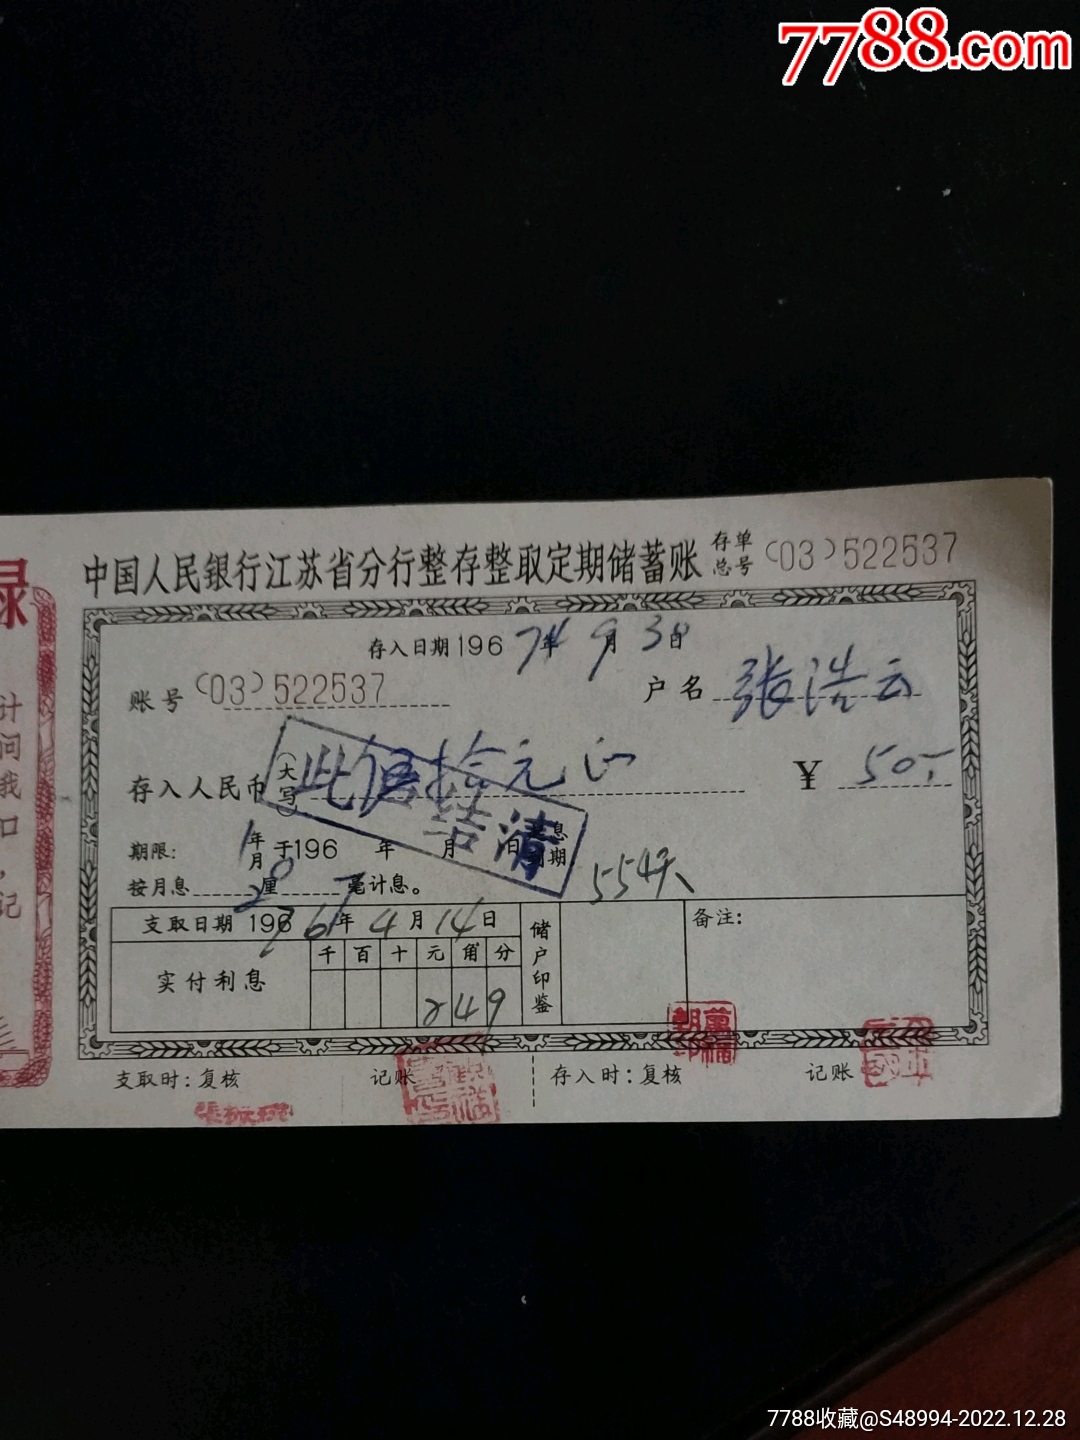 7788.com
录
中国人民银行江苏省分行整存整取定期储蓄账 存单总号 (03)522537
存入日期196 74年9月3日
账号 (03)522537 户名 张浩云
存入人民币(大写) 伍拾元正 ¥ 50.-
结清
期限: 1年月 于196 年 月 日 期 554天
按月息 厘 毫计息。
支取日期 196 76年4月14日 储户印鉴 备注:
实付利息 千 百 十 元 角 分
2 4 9
支取时:复核 记账 存入时:复核 记账
计
间
我
口
,
记
7788收藏@S48994-2022.12.28